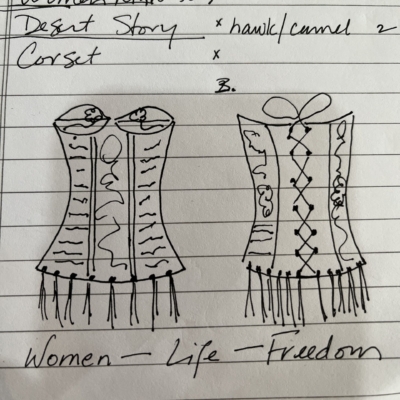 Desert Story × hawk/camel 2
Corset ×
B.
Women — Life — Freedom